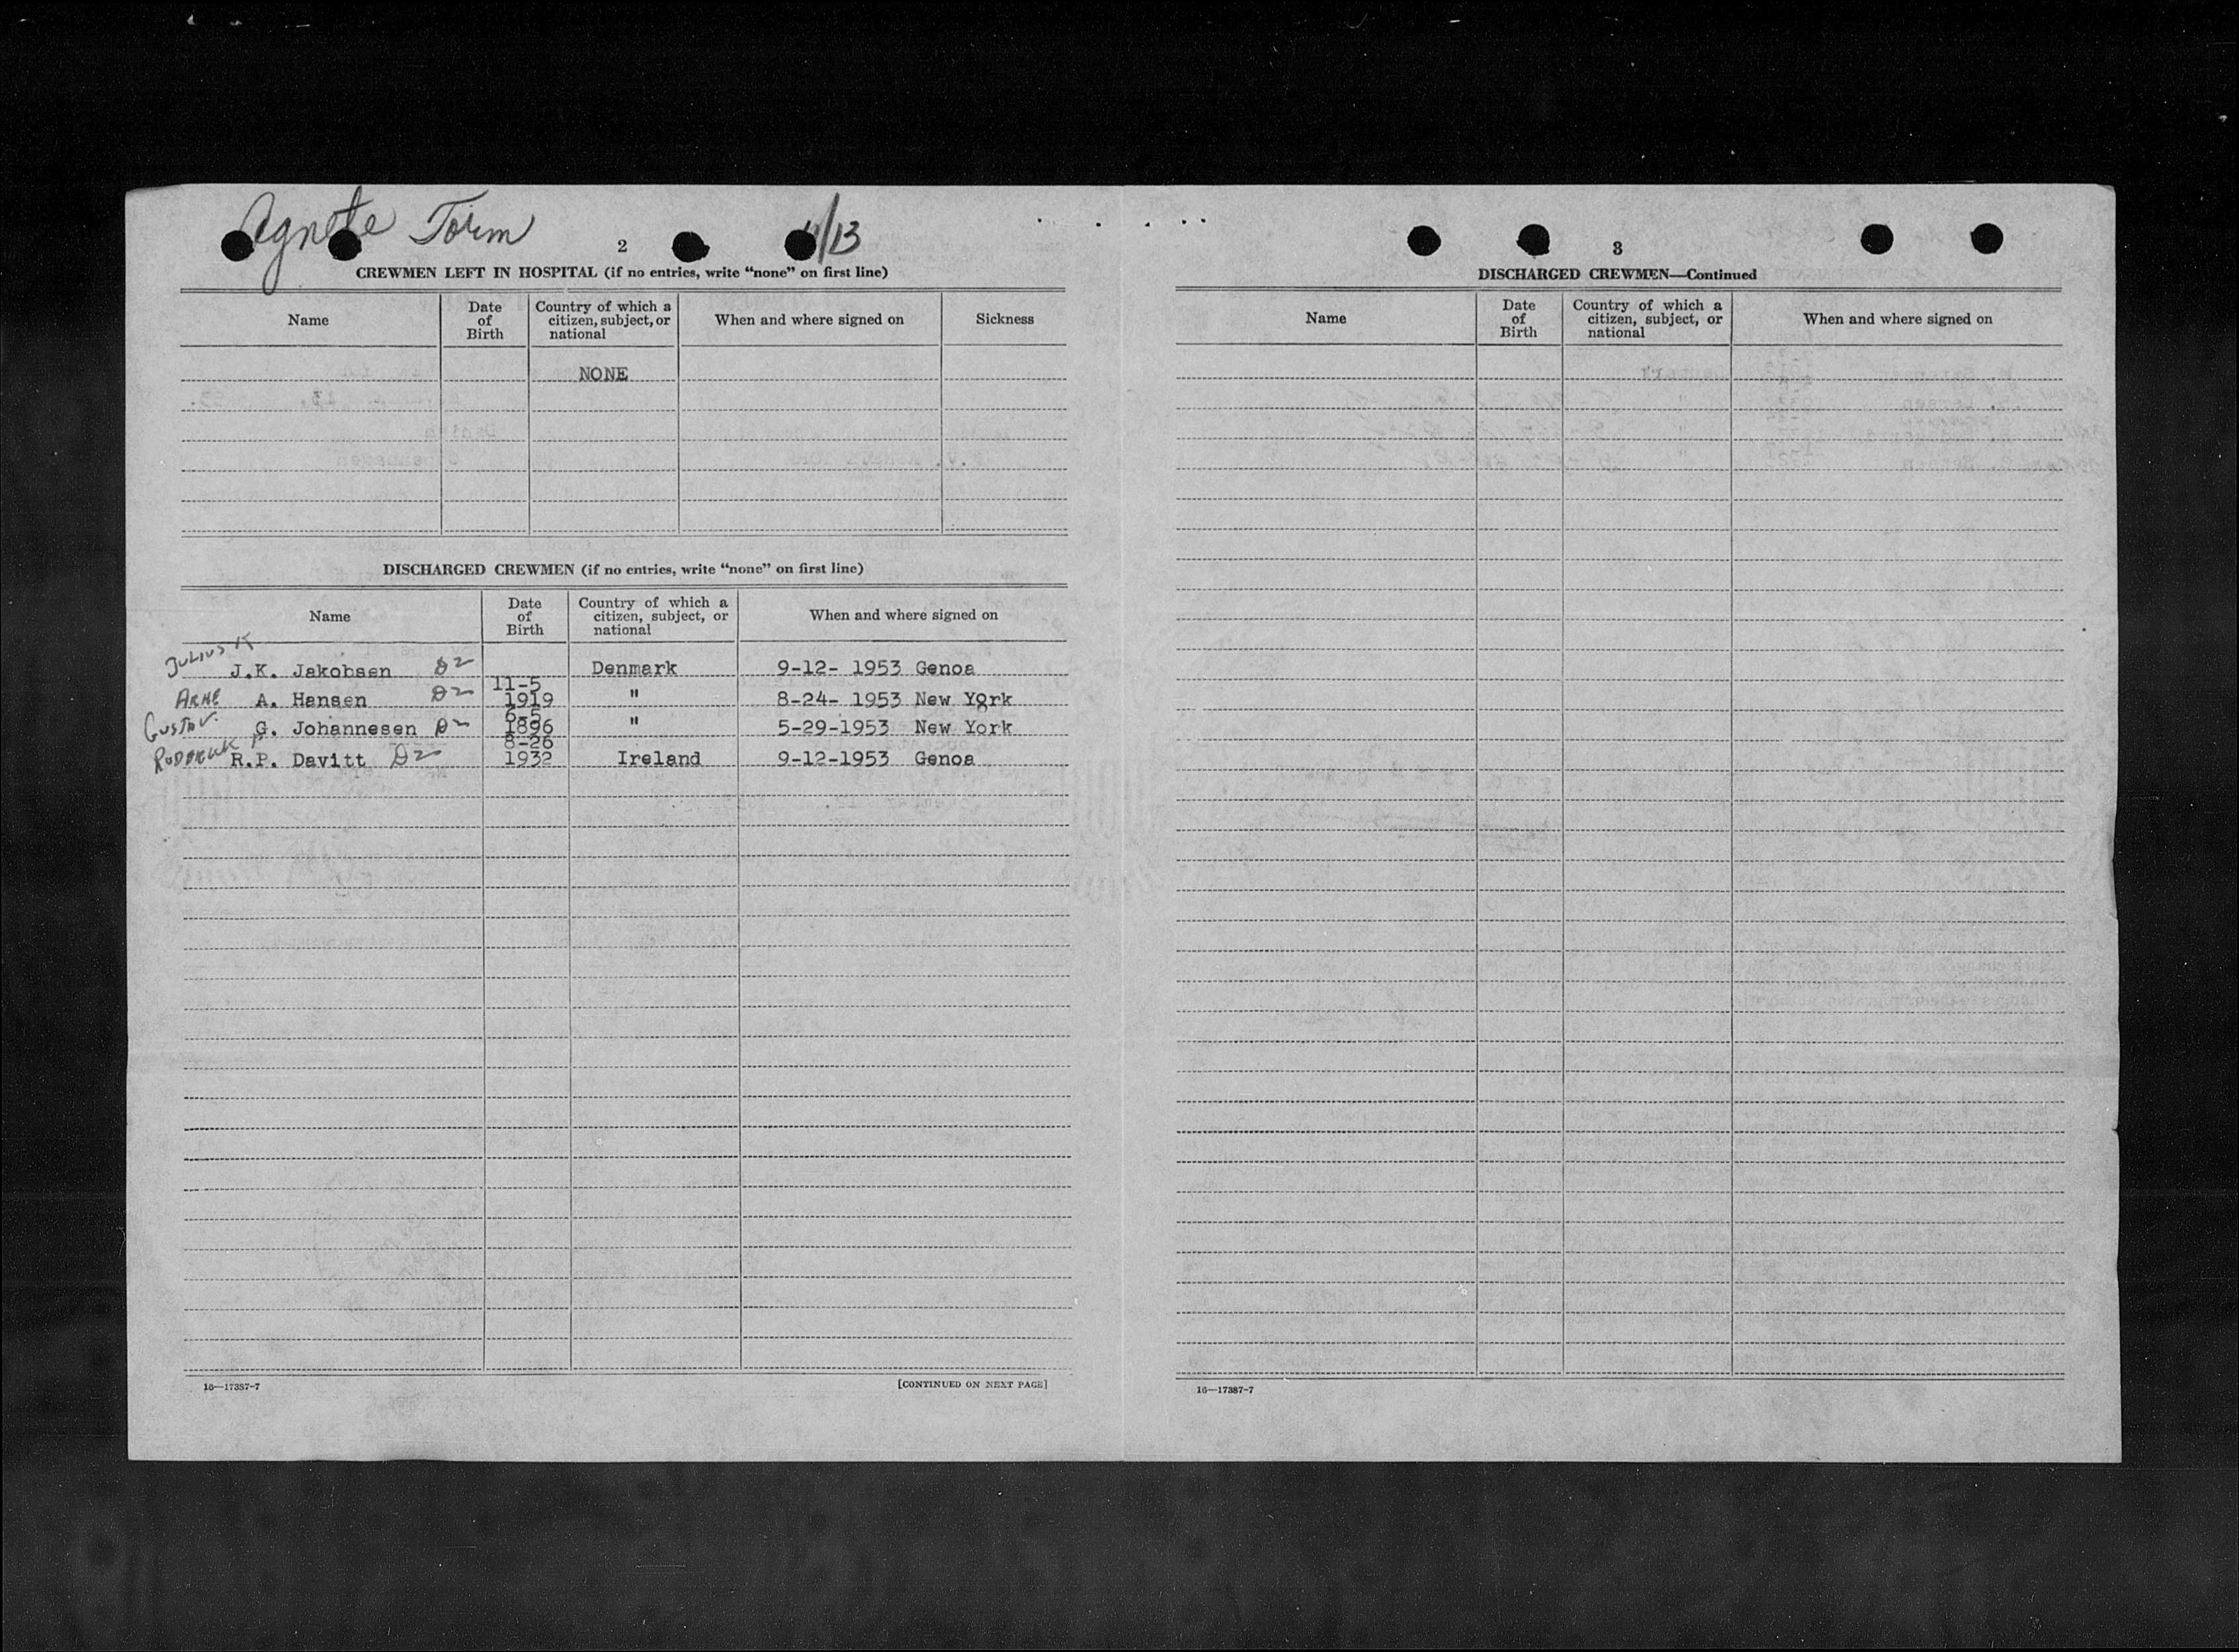 Agnete Torm
11/13
2
CREWMEN LEFT IN HOSPITAL (if no entries, write “none” on first line)
Name Date of Birth Country of which a citizen, subject, or national When and where signed on Sickness
NONE
DISCHARGED CREWMEN (if no entries, write “none” on first line)
Name Date of Birth Country of which a citizen, subject, or national When and where signed on
JULIUS K
J.K. Jakobsen D2 Denmark 9-12- 1953 Genoa
11-5
ARNE A. Hansen D2 1919 " 8-24- 1953 New York
6-5
GUSTAV. G. Johannesen D2 1896 " 5-29-1953 New York
8-26
RODERICK P R.P. Davitt D2 1932 Ireland 9-12-1953 Genoa
16—17387-7
[CONTINUED ON NEXT PAGE]
3
DISCHARGED CREWMEN—Continued
Name Date of Birth Country of which a citizen, subject, or national When and where signed on
16—17387-7